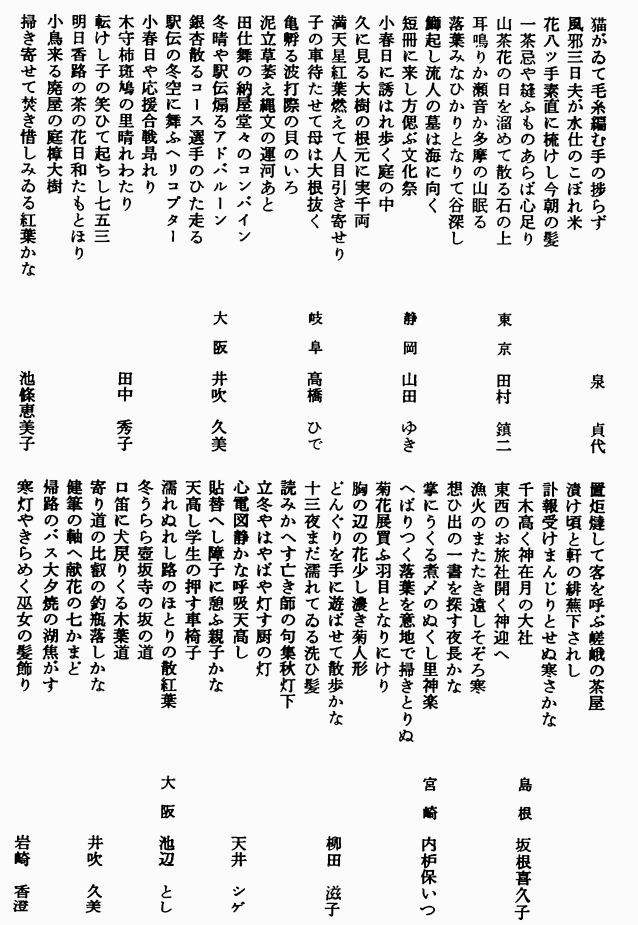 猫がゐて毛糸編む手の捗らず
風邪三日夫が水仕のこぼれ米　泉　貞代
花八ツ手素直に梳けし今朝の髪
一茶忌や縫ふものあらば心足り
山茶花の日を溜めて散る石の上
耳鳴りか瀬音か多摩の山眠る　東京　田村　鎮二
落葉みなひかりとなりて谷深し
鰤起し流人の墓は海に向く
短冊に来し方偲ぶ文化祭
小春日に誘はれ歩く庭の中　静岡　山田　ゆき
久に見る大樹の根元に実千両
満天星紅葉燃えて人目引き寄せり
子の車待たせて母は大根抜く
亀孵る波打際の貝のいろ　岐阜　高橋　ひで
泥立草萎え縄文の運河あと
田仕舞の納屋堂々のコンバイン
冬晴や駅伝煽るアドバルーン
銀杏散るコース選手のひた走る　大阪　井吹　久美
駅伝の冬空に舞ふヘリコプター
小春日や応援合戦昂れり
木守柿斑鳩の里晴れわたり
転けし子の笑ひて起ちし七五三　田中　秀子
明日香路の茶の花日和たもとほり
小鳥来る廃屋の庭樟大樹
掃き寄せて焚き惜しみゐる紅葉かな　池條恵美子
置炬燵して客を呼ぶ嵯峨の茶屋
漬け頃と軒の緋蕪下されし
訃報受けまんじりとせぬ寒さかな
千木高く神在月の大社　島根　坂根喜久子
東西のお旅社開く神迎へ
漁火のまたたき遠しそぞろ寒
想ひ出の一書を探す夜長かな
掌にうくる煮〆のぬくし里神楽　宮崎　内枦保いつ
へばりつく落葉を意地で掃きとりぬ
菊花展買ふ羽目となりにけり
胸の辺の花少し濃き菊人形
どんぐりを手に遊ばせて散歩かな　柳田　滋子
十三夜まだ濡れてゐる洗ひ髪
読みかへす亡き師の句集秋灯下
立冬やはやばや灯す厨の灯
心電図静かな呼吸天高し　天井　シゲ
貼替へし障子に憩ふ親子かな
天高し学生の押す車椅子
濡れぬれし路のほとりの散紅葉　大阪　池辺　とし
冬うらら壺坂寺の坂の道
口笛に犬戻りくる木葉道
寄り道の比叡の釣瓶落しかな　井吹　久美
健筆の軸へ献花の七かまど
帰路のバス大夕焼の湖焦がす
寒灯やきらめく巫女の髪飾り　岩崎　香澄